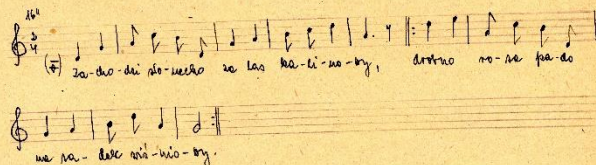 16"
3/4
Za-cho-dzi słonecko za las ka-li-no-wy, drobno ro-sa pa-do
na sa-dek wiś-nio-wy.